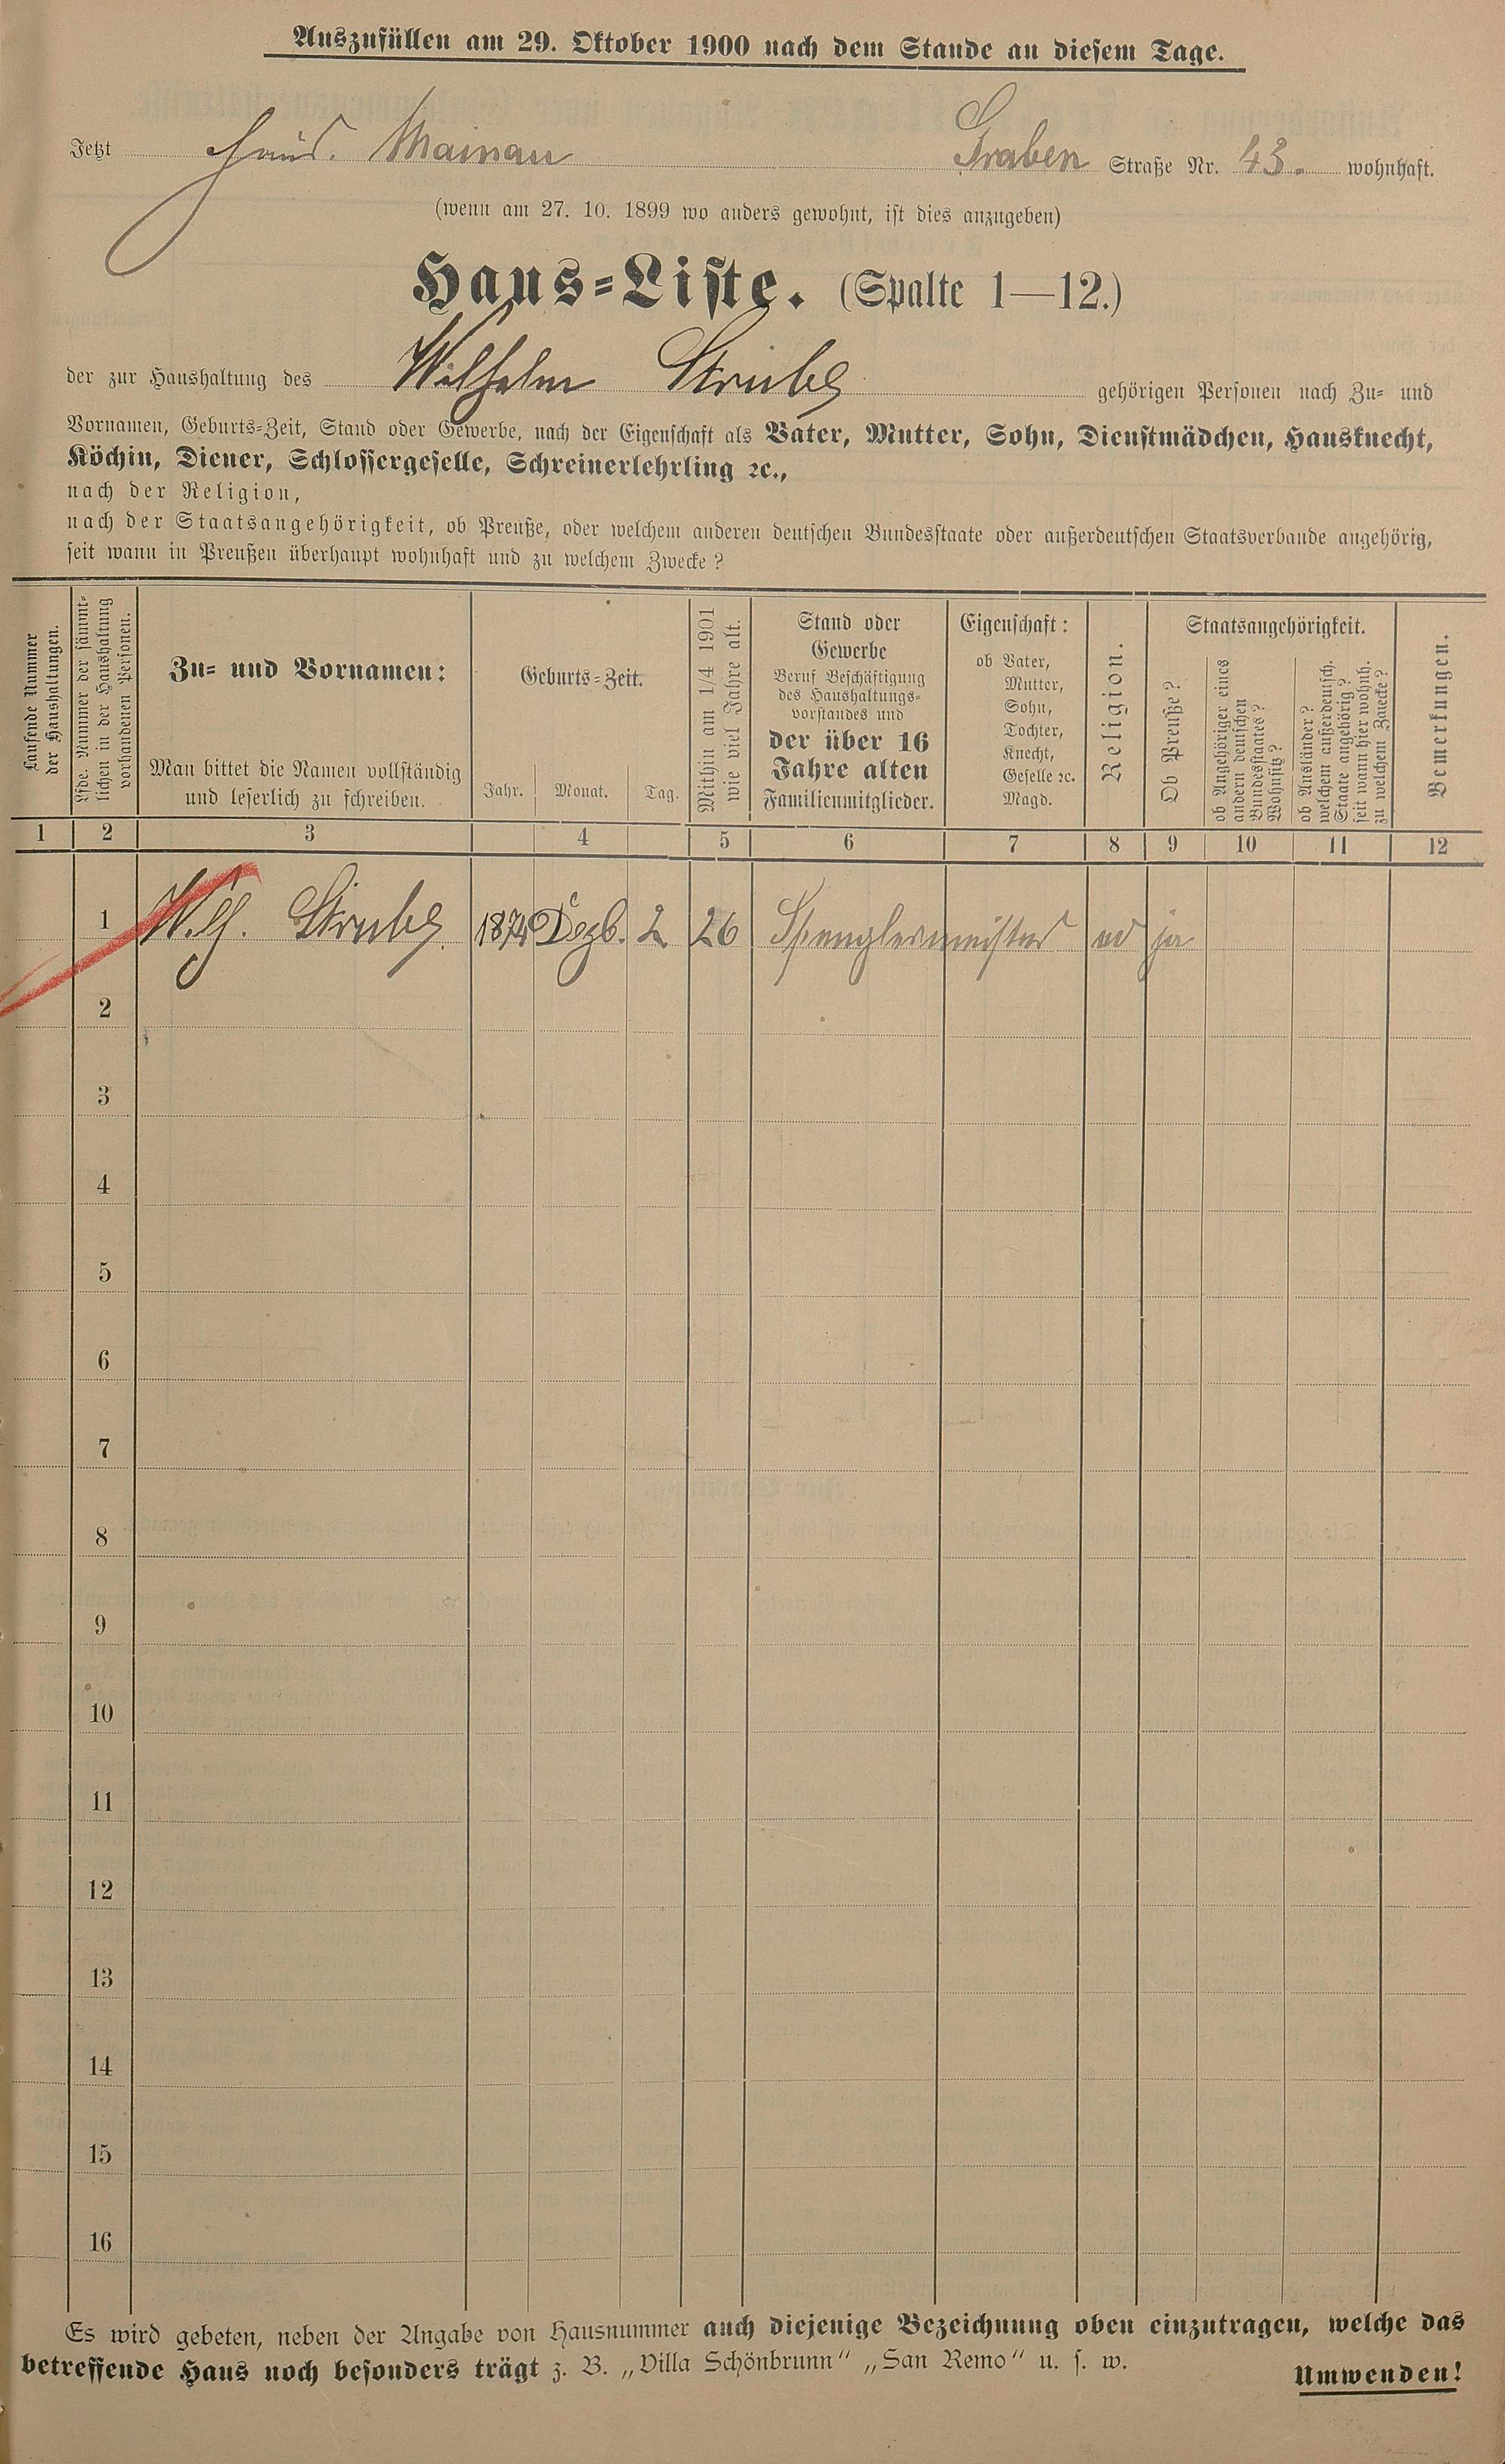 Auszufüllen am 29. Oktober 1900 nach dem Stande an diesem Tage.
Jetzt Haus. Mainau Graben Straße Nr. 43. wohnhaft.
(wenn am 27. 10. 1899 wo anders gewohnt, ist dies anzugeben)
Haus-Liste. (Spalte 1—12.)
der zur Haushaltung des Wilhelm Strube gehörigen Personen nach Zu- und
Vornamen, Geburts-Zeit, Stand oder Gewerbe, nach der Eigenschaft als Vater, Mutter, Sohn, Dienstmädchen, Hausknecht,
Köchin, Diener, Schlossergeselle, Schreinerlehrling ꝛc.,
nach der Religion,
nach der Staatsangehörigkeit, ob Preuße, oder welchem anderen deutschen Bundesstaate oder außerdeutschen Staatsverbande angehörig,
seit wann in Preußen überhaupt wohnhaft und zu welchem Zwecke?
Laufende Nummer
der Haushaltungen.
Lfde. Nummer der sämmt-
lichen in der Haushaltung
vorhandenen Personen.
Zu- und Vornamen:
Man bittet die Namen vollständig
und leserlich zu schreiben.
Geburts-Zeit.
Jahr. Monat. Tag.
Mithin am 1/4 1901
wie viel Jahre alt.
Stand oder
Gewerbe
Beruf Beschäftigung
des Haushaltungs-
vorstandes und
der über 16
Jahre alten
Familienmitglieder.
Eigenschaft:
ob Vater,
Mutter,
Sohn,
Tochter,
Knecht,
Geselle ꝛc.
Magd.
Religion.
Staatsangehörigkeit.
Ob Preuße?
ob Angehöriger eines
andern deutschen
Bundesstaates?
Wohnsitz?
ob Ausländer?
welchem außerdeutsch.
Staate angehörig?
seit wann hier wohnh.
zu welchem Zwecke?
Bemerkungen.
1 2 3 4 5 6 7 8 9 10 11 12
1 Wilh. Strube 1874 Dezb. 2 26 Spenglermeister ev ja
2
3
4
5
6
7
8
9
10
11
12
13
14
15
16
Es wird gebeten, neben der Angabe von Hausnummer auch diejenige Bezeichnung oben einzutragen, welche das
betreffende Haus noch besonders trägt z. B. „Villa Schönbrunn“ „San Remo“ u. s. w.
Umwenden!